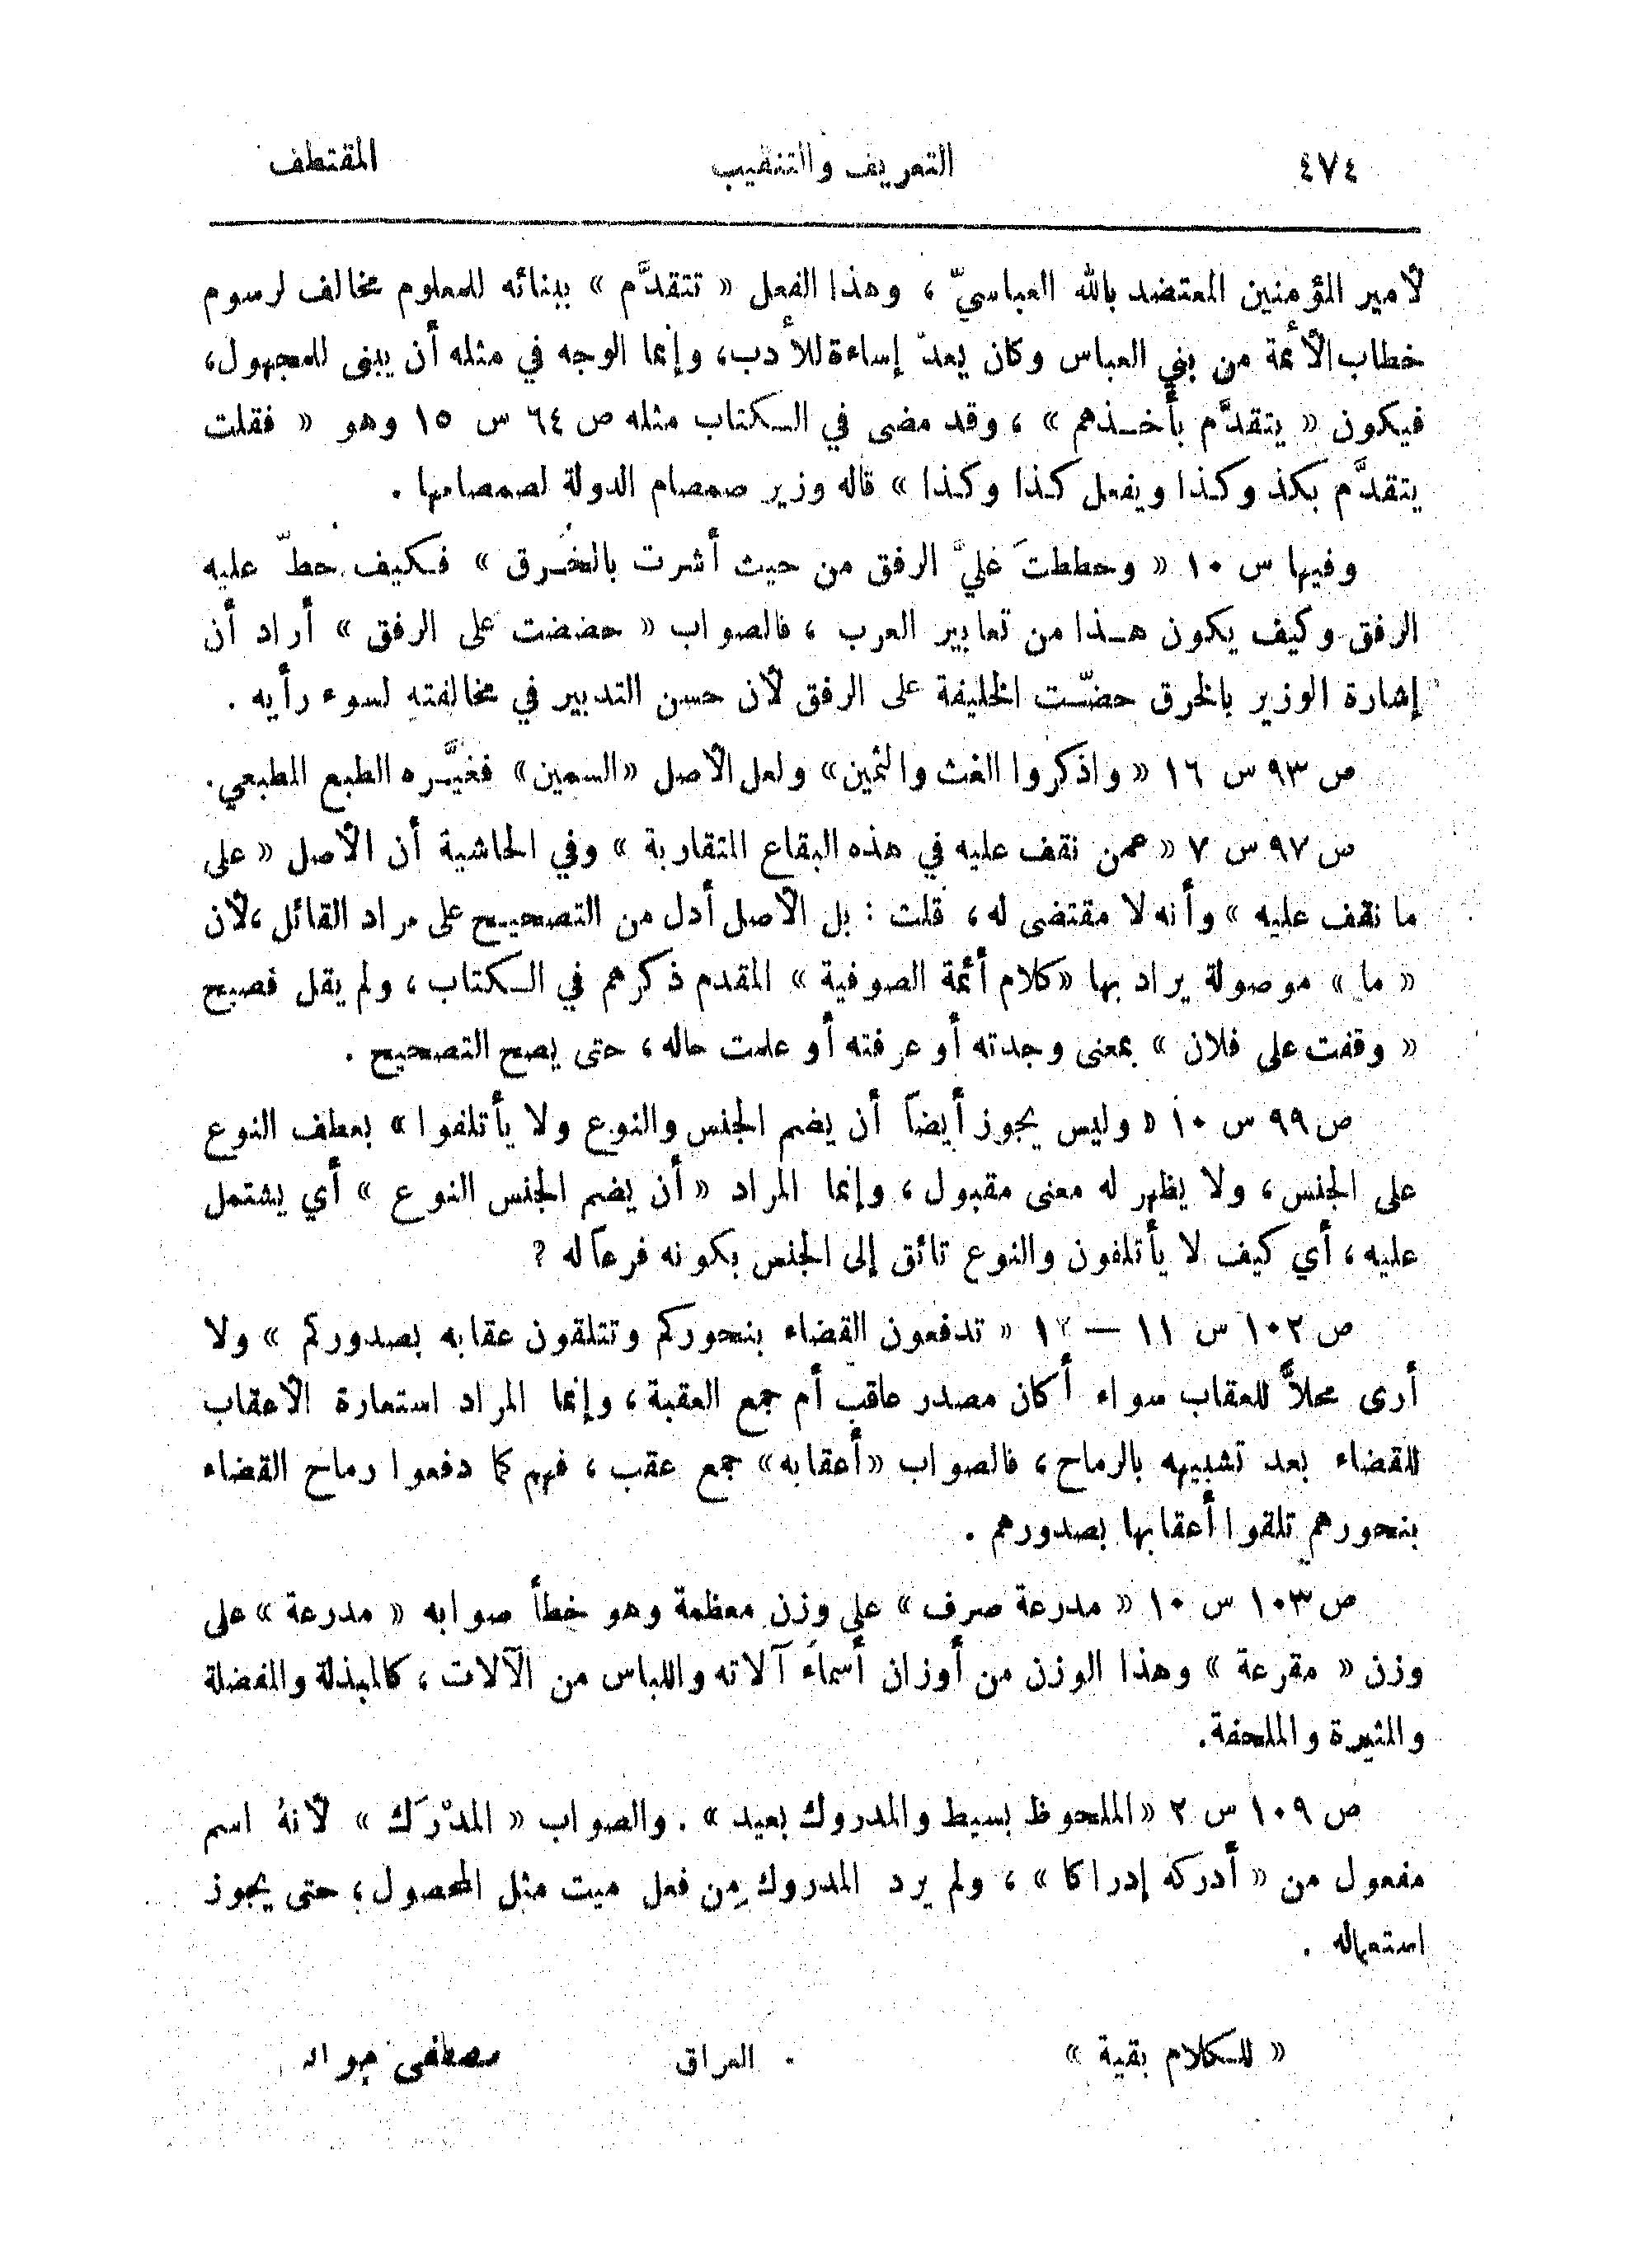 ٤٧٤ التعريف والتنقيب المقتطف
لأمير المؤمنين المعتضد بالله العباسيّ ، وهذا الفعل « تتقدَّم » ببنائه للمعلوم مخالف لرسوم
خطاب الأئمة من بني العباس وكان يعدّ إساءة للأدب، وإنما الوجه في مثله أن يبنى للمجهول،
فيكون « يتقدَّم بأخذهم » ، وقد مضى في الكتاب مثله ص ٦٤ س ١٥ وهو « فقلت
يتقدَّم بكذ وكذا ويفعل كذا وكذا » قاله وزير صمصام الدولة لصمصامها .
وفيها س ١٠ « وحططتَ عَليَّ الرفق من حيث أشرت بالخُرق » فكيف حطّ عليه
الرفق وكيف يكون هذا من تعابير العرب ، فالصواب « حضضت على الرفق » أراد أن
إشارة الوزير بالخرق حضّت الخليفة على الرفق لأن حسن التدبير في مخالفتهِ لسوء رأيه .
ص ٩٣ س ١٦ « واذكروا الغث والثمين» ولعل الأصل «السمين» فغيَّره الطبع المطبعي.
ص ٩٧ س ٧ « عمن نقف عليه في هذه البقاع المتقاربة » وفي الحاشية أن الأصل « على
ما نقف عليه » وأنه لا مقتضى له ، قلت : بل الأصل أدل من التصحيح على مراد القائل ،لأن
« ما » موصولة يراد بها «كلام أئمة الصوفية » المقدم ذكرهم في الكتاب ، ولم يقل فصيح
« وقفت على فلان » بمعنى وجدته أو عرفته أو علمت حاله ، حتى يصح التصحيح .
ص ٩٩ س ١٠ « وليس يجوز أيضاً أن يضم الجنس والنوع ولا يأتلفوا » بعطف النوع
على الجنس ، ولا يظهر له معنى مقبول ، وإنما المراد « أن يضم الجنس النوع » أي يشتمل
عليه ، أي كيف لا يأتلفون والنوع تائق إلى الجنس بكونه فرعاً له ؟
ص ١٠٢ س ١١ — ١٢ « تدفعون القضاء بنحوركم وتتلقون عقابه بصدوركم » ولا
أرى محلاًّ للعقاب سواء أكان مصدر عاقب أم جمع العقبة ، وإنما المراد استعارة الأعقاب
للقضاء بعد تشبيهه بالرماح ، فالصواب «أعقابه» جمع عقب ، فهم كما دفعوا رماح القضاء
بنحورهم تلقوا أعقابها بصدورهم .
ص ١٠٣ س ١٠ « مدرعة صرف » على وزن معظمة وهو خطأ صوابه « مدرعة » على
وزن « مقرعة » وهذا الوزن من أوزان أسماءَ آلاته واللباس من الآلات ، كالمبذلة والمفضلة
والمثيرة والملحفة.
ص ١٠٩ س ٢ «الملحوظ بسيط والمدروك بعيد» . والصواب « المدْرَك » لأنهُ اسم
مفعول من « أدركه إدراكا » ، ولم يرد المدروك مِن فعل ميت مثل المحصول، حتى يجوز
استعماله .
« للكلام بقية » العراق مصطفى جواد